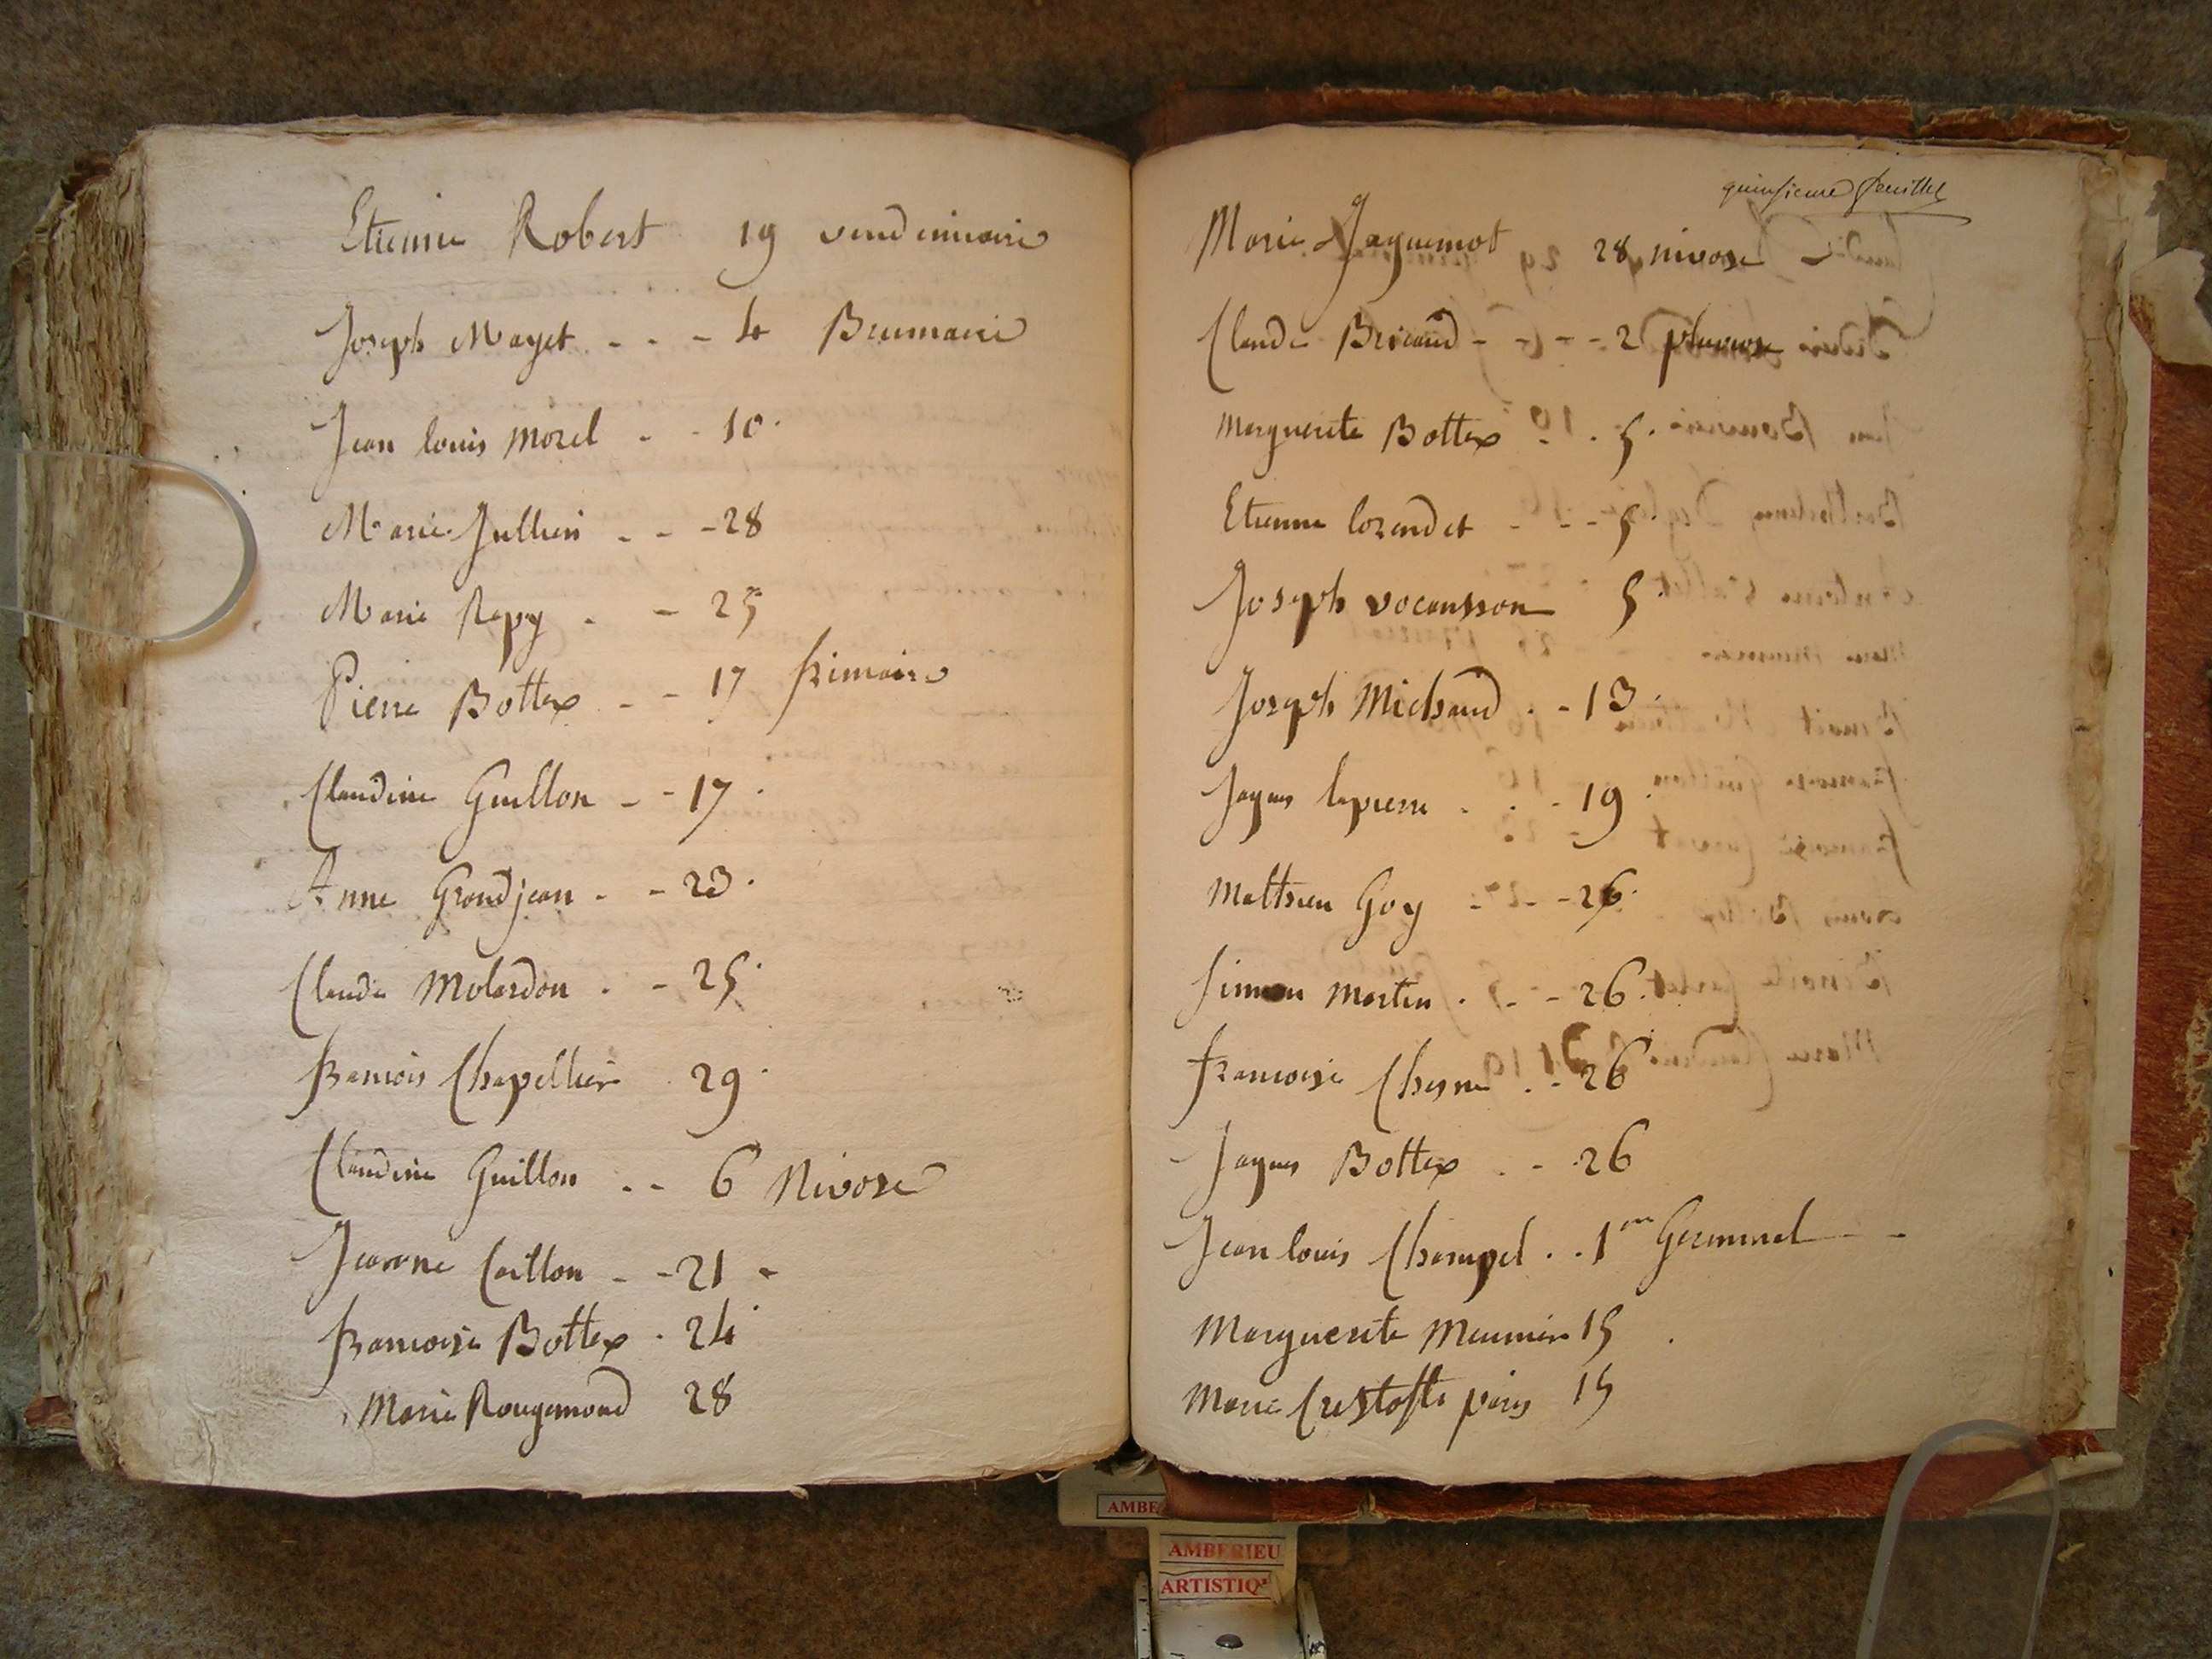 Etienne Robert 19 vendemiaire
Joseph Mayet - - - 4 Brumaire
Jean louis Morel - - 10.
Marie Jullien - - - 28
Marie Repy - - 25
Pierre Bottex - - 17 frimaire
Claudine Guillon - - 17.
Anne Grandjean - - 23.
Claude Molardon . - 25.
francois Chapellier 29.
Claudine Guillon . . - 6 Nivose
Jeanne Caillon - - 21 -
francoise Bottex . 24.
Marie Rougemond 28
quinsieme feuillet
Marie Jaguemot 28 nivose
Claude Bricaud - - - - 2 pluviose
Marguerite Bottex - . 5.
Etienne lorendet - - - 5.
Joseph vocansson 5.
Joseph Michaud . - 13.
Jaques lapierre . . - 19.
Mathieu Goy - - - 26.
Simon Martin . - - 26.
francoise Chesne . - 26
Jaques Bottex . - 26
Jean louis Champel . . 1er Germinal - -
Marguerite Meunier 15 .
Marie 15
AMBE
AMBERIEU
ARTISTIQ